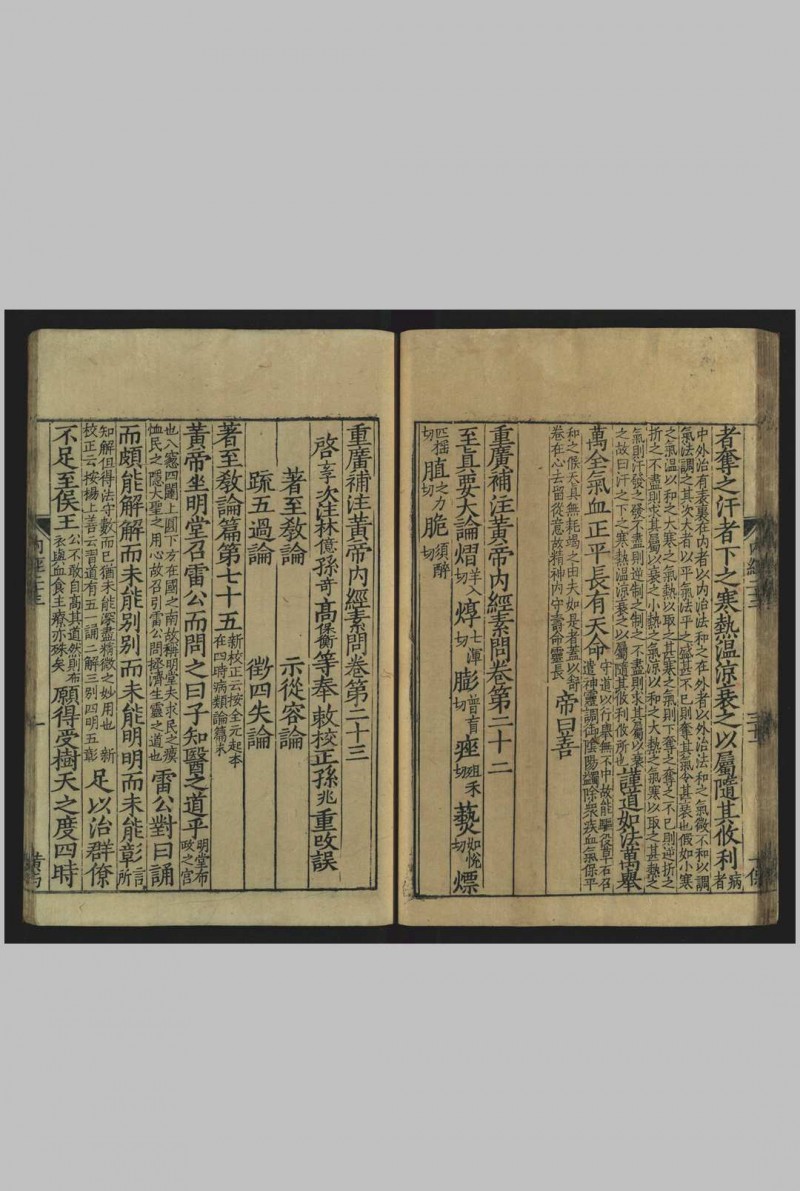 者奪之汗者下之寒熱溫涼衰之以屬隨其攸利病者
中外治有表裏在內者以內治法和之在外者以外治法和之氣微不和以調
氣法調之其次大者以平氣法平之盛甚不已則奪其氣令甚衰也假如小寒
之氣溫以和之大寒之氣熱以取之甚寒之氣則下奪之奪之不已則逆折之
折之不盡則求其屬以衰之小熱之氣涼以和之大熱之氣寒以取之甚熱之
氣則汗發之發不盡則逆制之制之不盡則求其屬以衰
之故曰汗之下之寒熱溫涼衰之以屬隨其攸利攸所也謹道如法萬舉
萬全氣血正平長有天命守道以行舉無不中故能驅役草石召
遣神靈調御陰陽蠲除衆疾血氣保平
和之候天真無耗竭之由夫如是者蓋以舒
卷在心去留從意故精神內守壽命靈長帝曰善
重廣補注黃帝內經素問卷第二十二
至真要大論熠羊入切焞七渾切膨普盲切痤徂禾切爇如悅切熛
匹摇切膱之力切脆須醉切
重廣補注黃帝內經素問卷第二十三
啓玄子次注林億孫奇高保衡等奉敕校正孫兆重改誤
著至敎論 示從容論
疏五過論 徵四失論
著至敎論篇第七十五新校正云按全元起本
在四時病類論篇末
黃帝坐明堂召雷公而問之曰子知醫之道乎明堂布
政之宮
也八窻四闥上圓下方在國之南故稱明堂夫求民之瘼
恤民之隱大聖之用心故召引雷公問拯濟生靈之道也雷公對曰誦
而頗能解解而未能別別而未能明明而未能彰言所
知解但得法守數而已猶未能深盡精微之妙用也 新
校正云按楊上善云習道有五一誦二解三別四明五彰足以治群僚
不足至侯王公不敢自高其道然則布
衣與血食主療亦殊矣願得受樹天之度四時